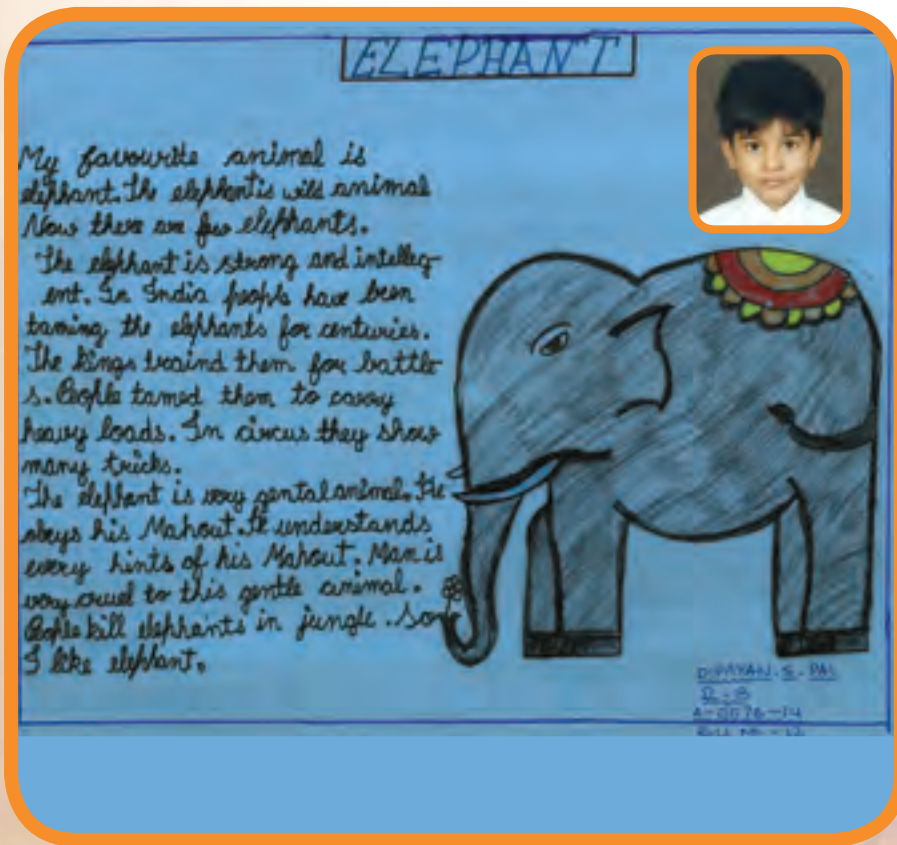 ELEPHANT
My favourite animal is
elephant. The elephant is wild animal
Now there are few elephants.
The elephant is strong and intelleg
ent. In India people have been
taming the elephants for centuries.
The kings traind them for battle
s. People tamed them to carry
heavy loads. In circus they show
many tricks.
The elephant is very gental animal. He
obeys his Mahout. It understands
every hints of his Mahout. Man is
very cruel to this gentle animal.
People kill elephants in jungle. Some
I like elephant.
DIPAYAN. S. PAL
A-0076-14